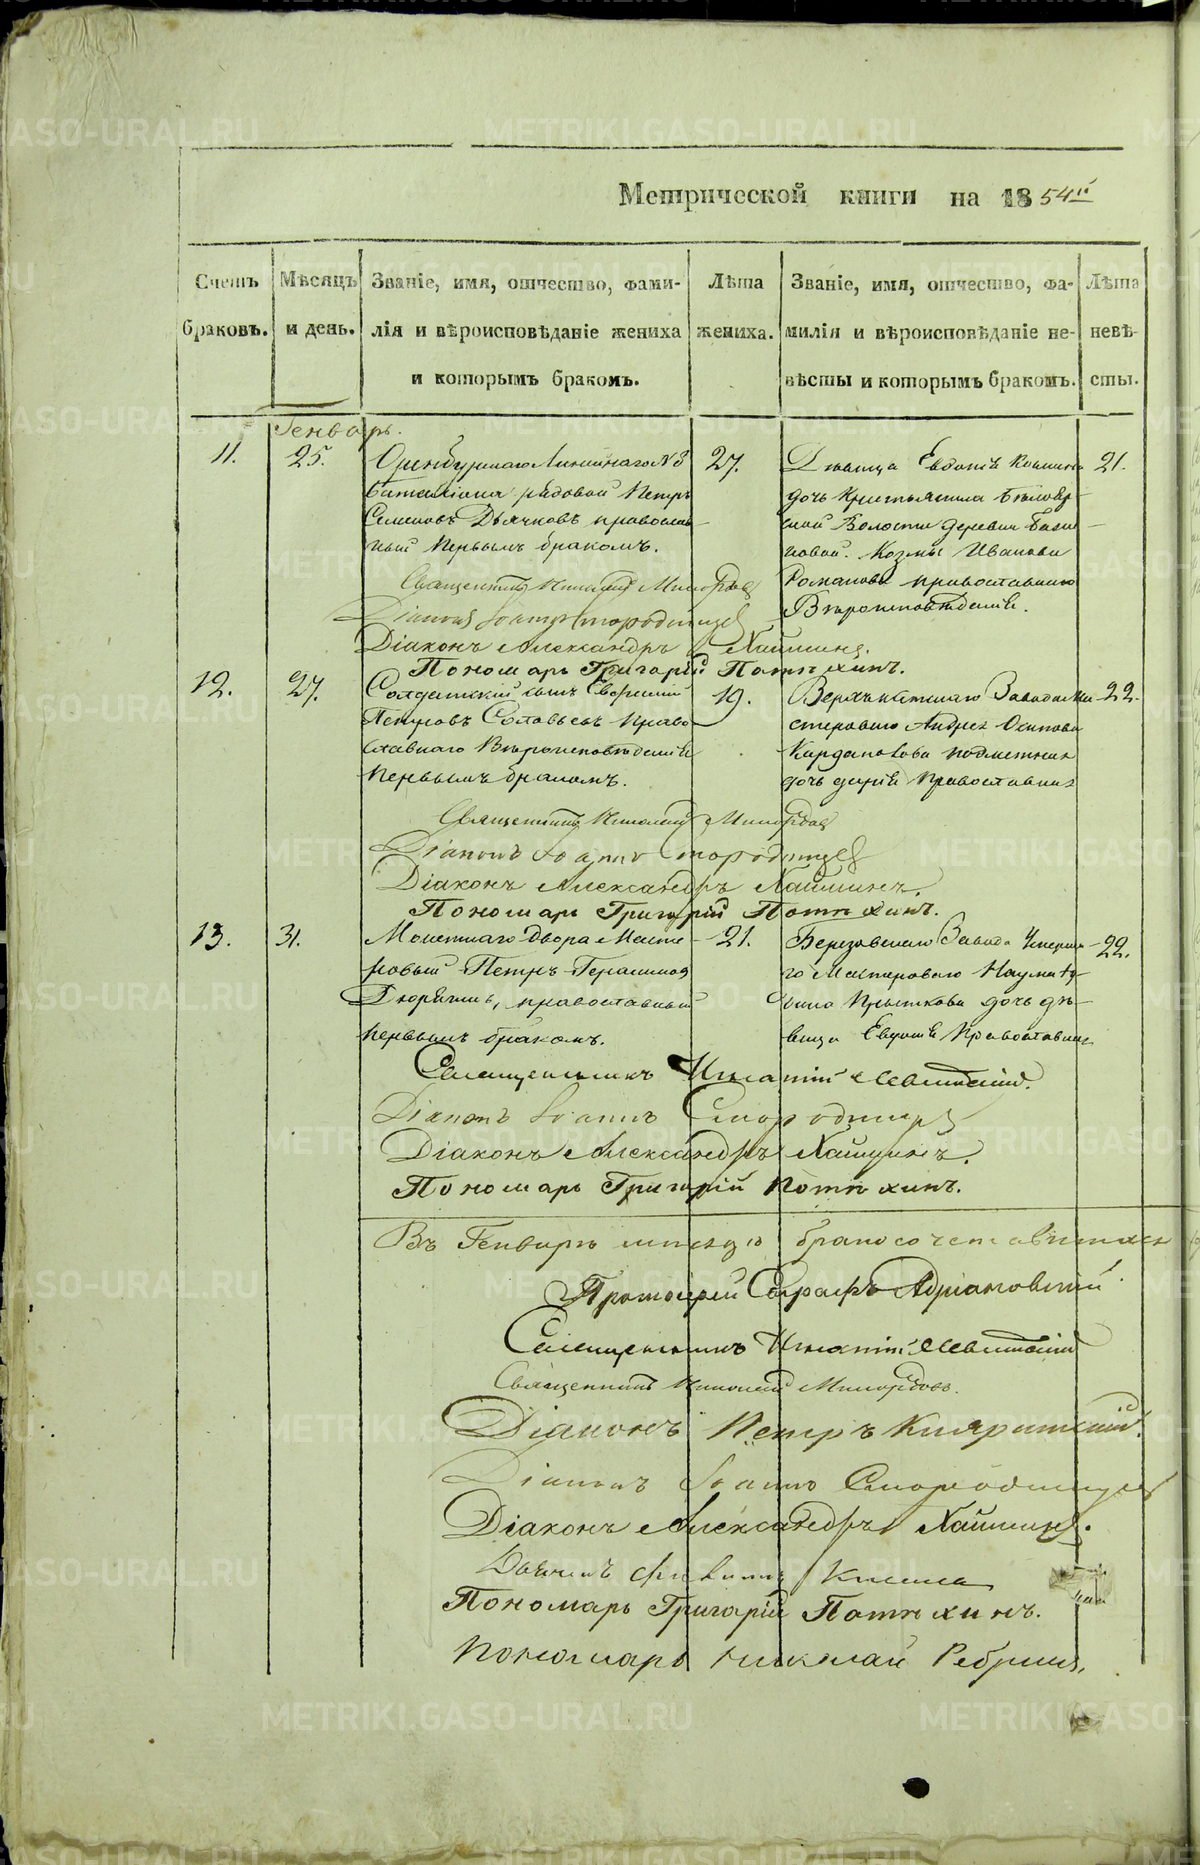 Метрической книги на 1854й
Счетъ браковъ.
Мѣсяцъ и день.
Званіе, имя, отчество, фами-
лія и вѣроисповѣданіе жениха
и которымъ бракомъ.
Лѣта
жениха.
Званіе, имя, отчество, фа-
милія и вѣроисповѣданіе не-
вѣсты и которымъ бракомъ.
Лѣта
невѣ-
сты.
Генварь.
11.
25.
Оренбургскаго Линейнаго №
баталіона рядовой Петръ
Семеновъ Дьячковъ православ-
ный первымъ бракомъ.
27.
Дѣвица Евдокія
дочь крестьянина
Волости деревни
Козмы Иванова
Романова православнаго
Вѣроисповѣданія.
21.
Священникъ Николай Милордовъ
Діаконъ Іоаннъ Смородинцевъ
Діаконъ Александръ Хаймина.
Пономарь Григорій Потпхинъ.
12.
27.
Солдатскій сынъ Евгеній
Петровъ Соловьевъ право-
славнаго Вѣроисповѣданія
первымъ бракомъ.
19.
Верхъисетскаго Завода ма-
стероваго Андрея Осипова
Кардапольова
дочь дѣвица Православная
22.
Священникъ Николай Милордовъ
Діаконъ Іоаннъ Смородинцевъ
Діаконъ Александръ Хайминъ.
Пономарь Григорій Потпхинъ.
13.
31.
Монетнаго Двора Масте-
ровый Петръ Герасимов
православный
первымъ бракомъ.
21.
Березовскаго Завода Умерша-
го Мастероваго Наума
дочь дѣ-
вица Православная
22.
Священникъ Игнатій Левитскій.
Діаконъ Іоаннъ Смородинцевъ
Діаконъ Александръ Хайминъ.
Пономарь Григорій Потпхинъ.
Въ Генварѣ мѣсяцѣ бракосочетавшихся
Протоіерей Серафъ Адріановскій
Священникъ Игнатій Левитскій
Священникъ Николай Милордовъ.
Діаконъ Петръ
Діаконъ Іоаннъ Смородинцевъ
Діаконъ Александръ Хайминъ.
Дьячекъ
Пономарь Григорій Потпхинъ.
Пономарь Николай Ребринъ.
METRIKI.GASO-URAL.RU